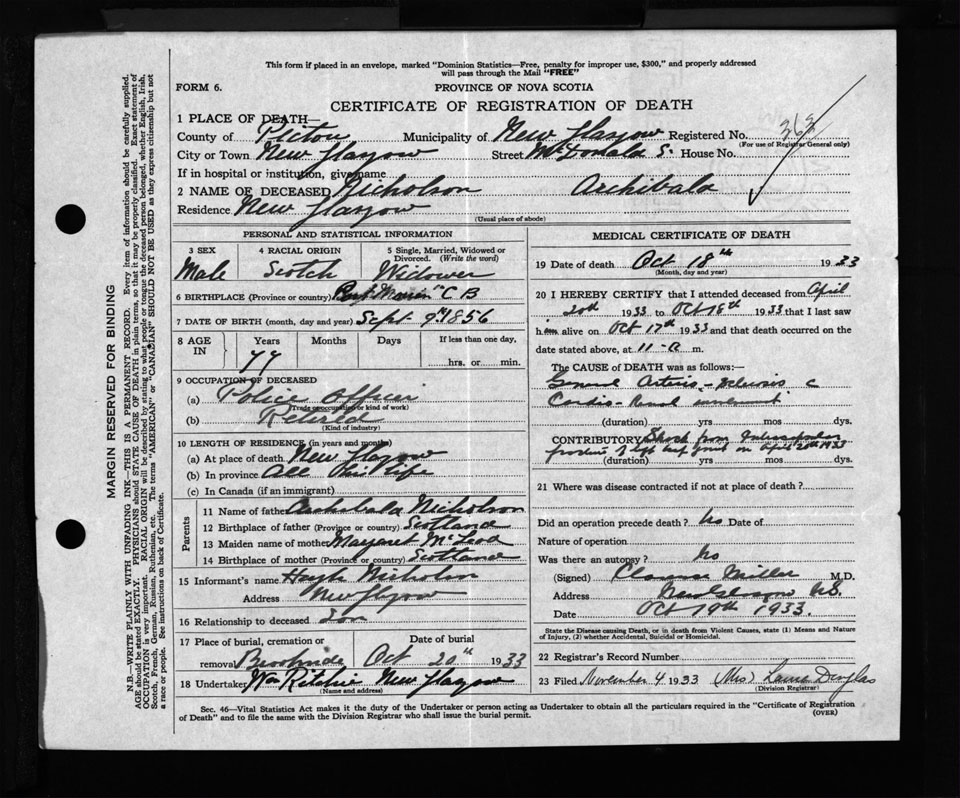 This form if placed in an envelope, marked "Dominion Statistics—Free, penalty for improper use, $300," and properly addressed
will pass through the Mail "FREE"
FORM 6.
PROVINCE OF NOVA SCOTIA
CERTIFICATE OF REGISTRATION OF DEATH
1 PLACE OF DEATH—
County of Pictou Municipality of New Glasgow Registered No. 362
(For use of Registrar General only)
City or Town New Glasgow Street McDonald S. House No.
If in hospital or institution, give name
2 NAME OF DECEASED Nicholson Archibald
Residence New Glasgow
(Usual place of abode)
PERSONAL AND STATISTICAL INFORMATION
3 SEX 4 RACIAL ORIGIN 5 Single, Married, Widowed or Divorced. (Write the word)
Male Scotch Widower
6 BIRTHPLACE (Province or country) Port Morien C B
7 DATE OF BIRTH (month, day and year) Sept 9th 1856
8 AGE IN Years Months Days If less than one day,
77 hrs. or min.
9 OCCUPATION OF DECEASED
(a) Police Officer
(Trade or occupation or kind of work)
(b) Retired
(Kind of industry)
10 LENGTH OF RESIDENCE (in years and months)
(a) At place of death New Glasgow
(b) In province All his life
(c) In Canada (if an immigrant)
Parents
11 Name of father Archibald Nicholson
12 Birthplace of father (Province or country) Scotland
13 Maiden name of mother Margaret McLeod
14 Birthplace of mother (Province or country) Scotland
15 Informant's name Hugh Nicholson
Address New Glasgow
16 Relationship to deceased Son
17 Place of burial, cremation or removal Date of burial
Oct 20th 1933
18 Undertaker Wm Ritchie New Glasgow
(Name and address)
MEDICAL CERTIFICATE OF DEATH
19 Date of death Oct 18th 1933
(Month, day and year)
20 I HEREBY CERTIFY that I attended deceased from April
20th 1933 to Oct 18th 1933 that I last saw
h im alive on Oct 17th 1933 and that death occurred on
date stated above, at 11-a m.
The CAUSE OF DEATH was as follows:—
General Arterio-sclerosis c
Cardio-Renal involvement
(duration) yrs mos dys.
CONTRIBUTORY Shock from
fracture of left hip joint on April 20th 1933
(duration) yrs mos dys.
21 Where was disease contracted if not at place of death?
Did an operation precede death? No Date of
Nature of operation
Was there an autopsy? No
(Signed) Clarence Miller M.D.
Address New Glasgow N.S.
Date Oct 19th 1933.
State the Disease causing Death, or in death from Violent Causes, state (1) Means and Nature
of Injury, (2) whether Accidental, Suicidal or Homicidal.
22 Registrar's Record Number
23 Filed November 4 1933 (Mrs) Laura Douglas
(Division Registrar)
Sec. 46—Vital Statistics Act makes it the duty of the Undertaker or person acting as Undertaker to obtain all the particulars required in the "Certificate of Registration
of Death" and to file the same with the Division Registrar who shall issue the burial permit.
(OVER)
MARGIN RESERVED FOR BINDING
N.B.—WRITE PLAINLY WITH UNFADING INK—THIS IS A PERMANENT RECORD. Every item of information should be carefully supplied.
AGE should be stated EXACTLY. PHYSICIANS should STATE CAUSE OF DEATH in plain terms, so that it may be properly classified. Exact statement of
OCCUPATION is very important. RACIAL ORIGIN will be described by stating to what people or tongue the deceased person belonged, whether English, Irish,
Scotch, French, German, Russian, Ruthenian, etc. The terms "AMERICAN" or "CANADIAN" SHOULD NOT BE USED as they express citizenship but not
a race or people. See instructions on back of Certificate.